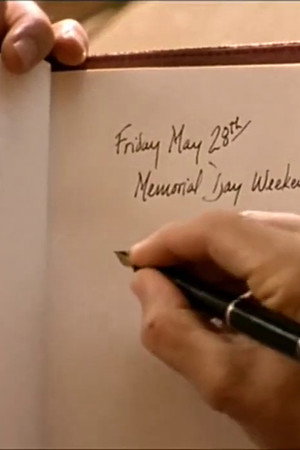 Friday May 28th
Memorial Day Weeke